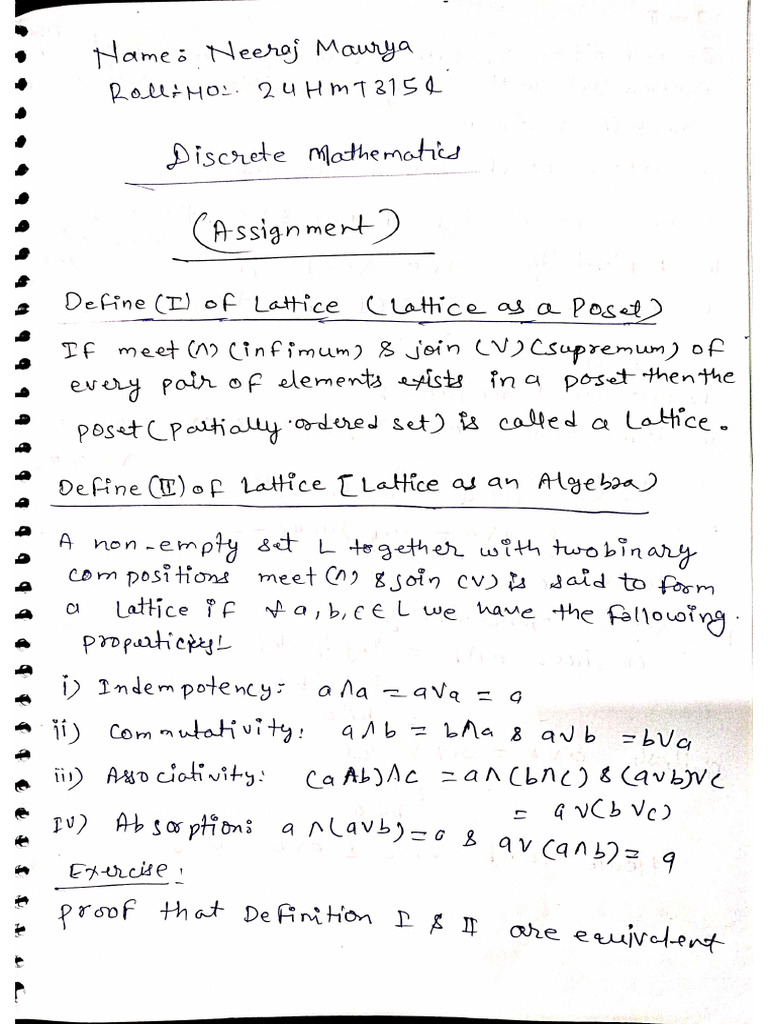 Name: Neeraj Maurya
Roll:No:. 24HMT3154
Discrete Mathematics
(Assignment)
Define (I) of Lattice (Lattice as a Poset)
If meet (∧) (infimum) & join (∨) (supremum) of
every pair of elements exists in a poset then the
poset (partially ordered set) is called a Lattice.
Define (II) of Lattice [Lattice as an Algebra)
A non-empty set L together with two binary
compositions meet (∧) & join (∨) is said to form
a Lattice if ∀ a, b, c ∈ L we have the following
i) Indempotency: a∧a = a∨a = a
ii) Commutativity: a∧b = b∧a & a∨b = b∨a
iii) Associativity: (a∧b)∧c = a∧(b∧c) & (a∨b)∨c
= a∨(b∨c)
IV) Absorption: a∧(a∨b) = a & a∨(a∧b) = a
Exercise:
Proof that Definition I & II are equivalent